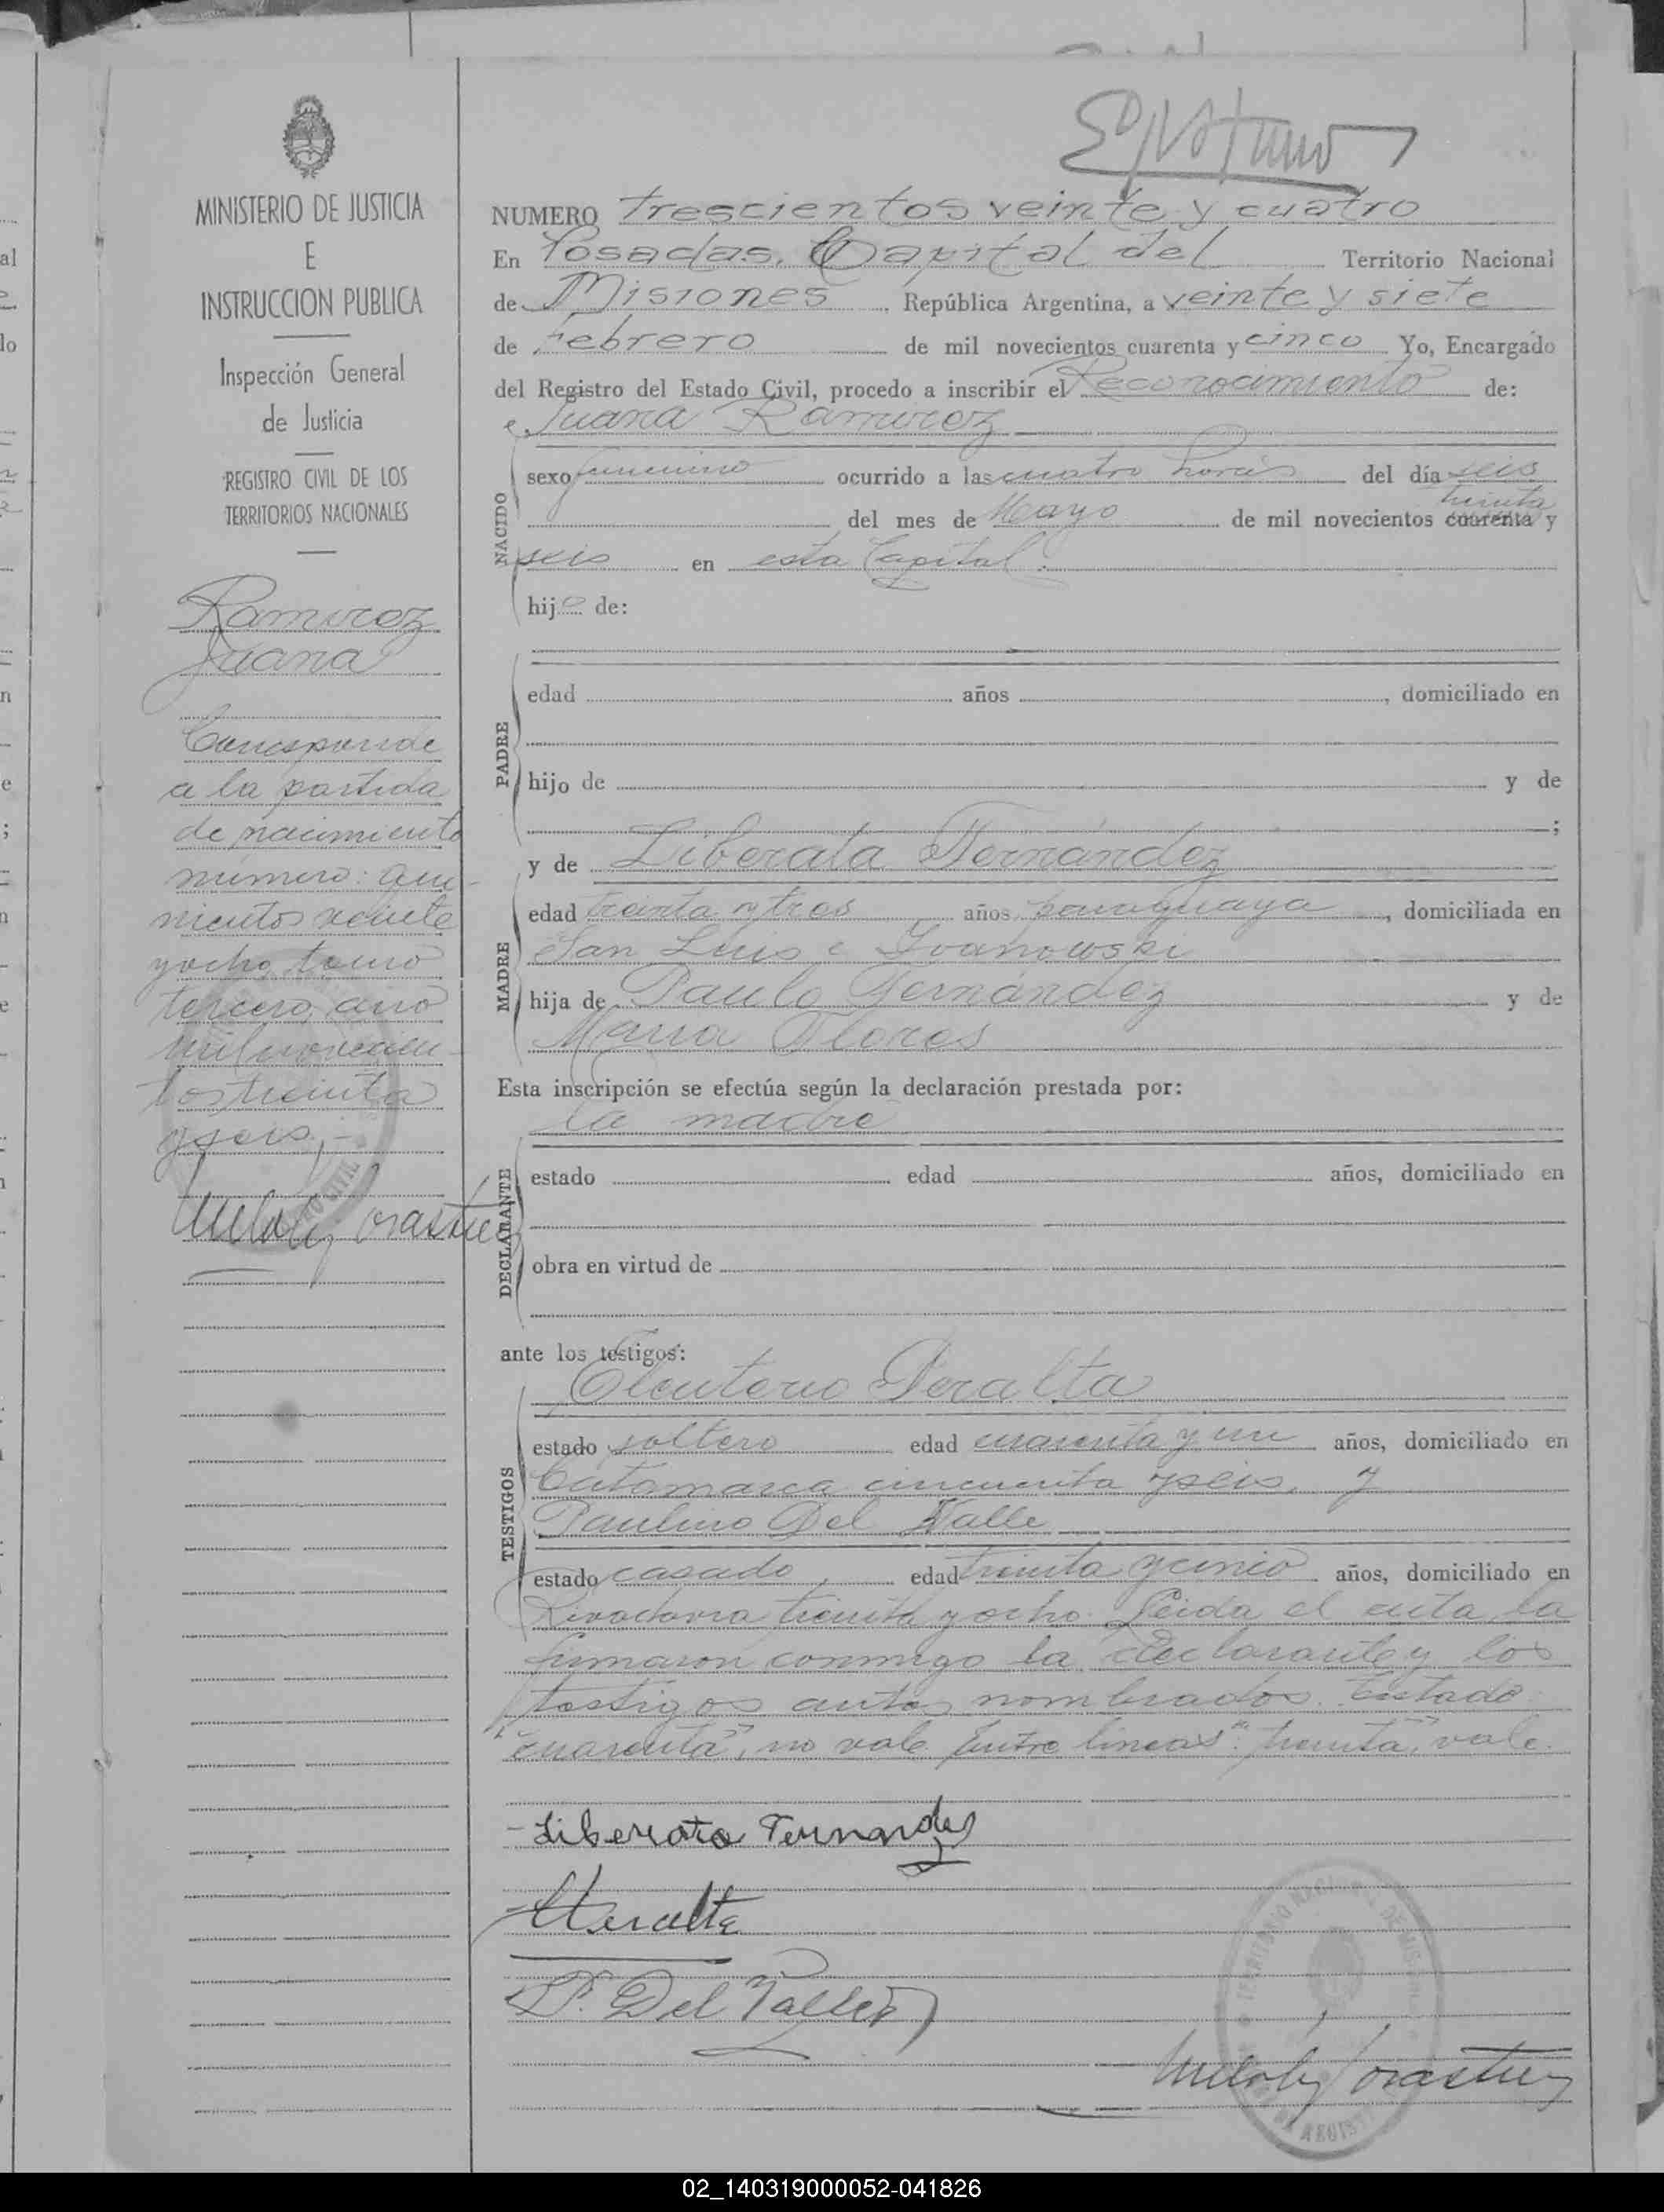 MINISTERIO DE JUSTICIA
E
INSTRUCCION PUBLICA
Inspección General
de Justicia
REGISTRO CIVIL DE LOS
TERRITORIOS NACIONALES
Ramirez
Juana
Corresponde
a la partida
de nacimiento
número: qui-
nientos veinte
y ocho, tomo
tercero, año
mil novecien-
tos treinta
y seis,-
NUMERO trescientos veinte y cuatro
En Posadas, Capital del Territorio Nacional
de Misiones República Argentina, a veinte y siete
de Febrero de mil novecientos cuarenta y cinco Yo, Encargado
del Registro del Estado Civil, procedo a inscribir el Reconocimiento de:
Juana Ramirez
NACIDO
sexo femenino ocurrido a las cuatro horas del día seis
treinta
del mes de Mayo de mil novecientos cuarenta y
seis en esta Capital.
hija de:
PADRE
edad años , domiciliado en
hijo de y de
;
MADRE
y de Liberata Fernández
edad treinta y tres años, paraguaya, domiciliada en
San Luis e Ivanowski
hija de Paulo Fernández y de
Maria Flores
Esta inscripción se efectúa según la declaración prestada por:
la madre
DECLARANTE
estado edad años, domiciliado en
obra en virtud de
ante los testigos:
TESTIGOS
Eleuterio Peralta
estado soltero edad cuarenta y un años, domiciliado en
Catamarca cincuenta y seis, y
Paulino Del Valle
estado casado, edad treinta y cinco años, domiciliado en
Rivadavia treinta y ocho. Leida el acta la
firmaron conmigo la declarante y los
testigos antes nombrados. Testado
"cuarenta", no vale. Entre lineas: "treinta", vale.
Liberata Fernandez
Peralta
P. Del Valle
02_140319000052-041826